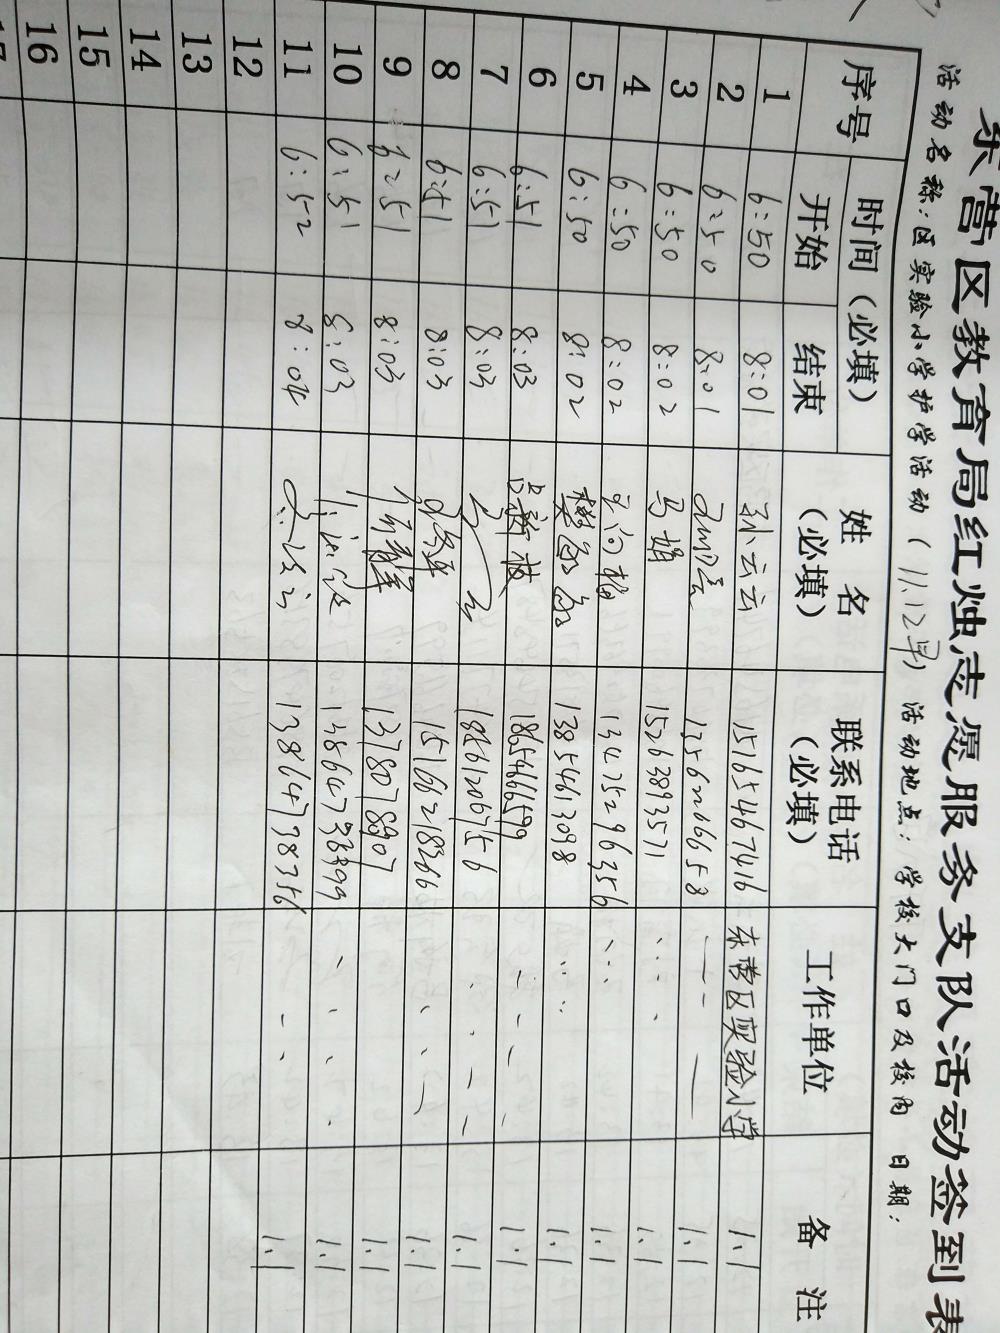 东营区教育局红烛志愿服务支队活动签到表
活动名称：区实验小学护学活动（11.12早）活动地点：学校大门口及校内 日期：
序号 时间（必填） 姓名（必填） 联系电话（必填） 工作单位 备注
开始 结束
1 6:50 8:01 孙云云 15165467416 东营区实验小学 1.1
2 6:50 8:01 13562016658 1.1
3 6:50 8:02 马娟 15263893571 1.1
4 6:50 8:02 13475296356 1.1
5 6:50 8:02 13854613098 1.1
6 6:51 8:03 18654666599 1.1
7 6:51 8:03 18561206756 1.1
8 6:51 8:03 15166218366 1.1
9 6:51 8:03 13780788907 1.1
10 6:51 8:03 1.1
11 6:52 8:04 13864738356 1.1
12
13
14
15
16
17